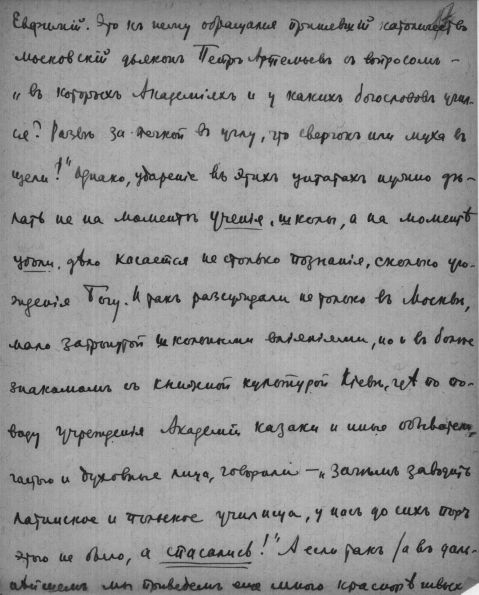 Евфимій. Это къ нему обращался принявшій католичество
московскій дьяконъ Петръ Артемьевъ съ вопросомъ –
„въ которыхъ Академіяхъ и у какихъ богослововъ учил-
ся? Развѣ за печкой въ углу, что сверчокъ или муха въ
щели!" Однако, удареніе въ этихъ цитатахъ нужно дѣ-
лать не на моментъ ученія, школы, а на моментѣ
. Дѣло касается не столько познанія, сколько уго-
жденія Богу. И такъ разсуждали не только въ Москвѣ,
мало затронутой школьными вліяніями, но и въ болѣе
знакомомъ съ книжной культурой Кіевѣ, гдѣ по по-
воду учрежденія Академіи казаки и иные обыватели,
частью и духовные лица, говорили – „Зачѣмъ заводить
латинское и польское училища, у насъ до сихъ поръ
этого не было, а спасались!" А если такъ /а въ даль-
нѣйшемъ мы приведемъ еще много краснорѣчивыхъ